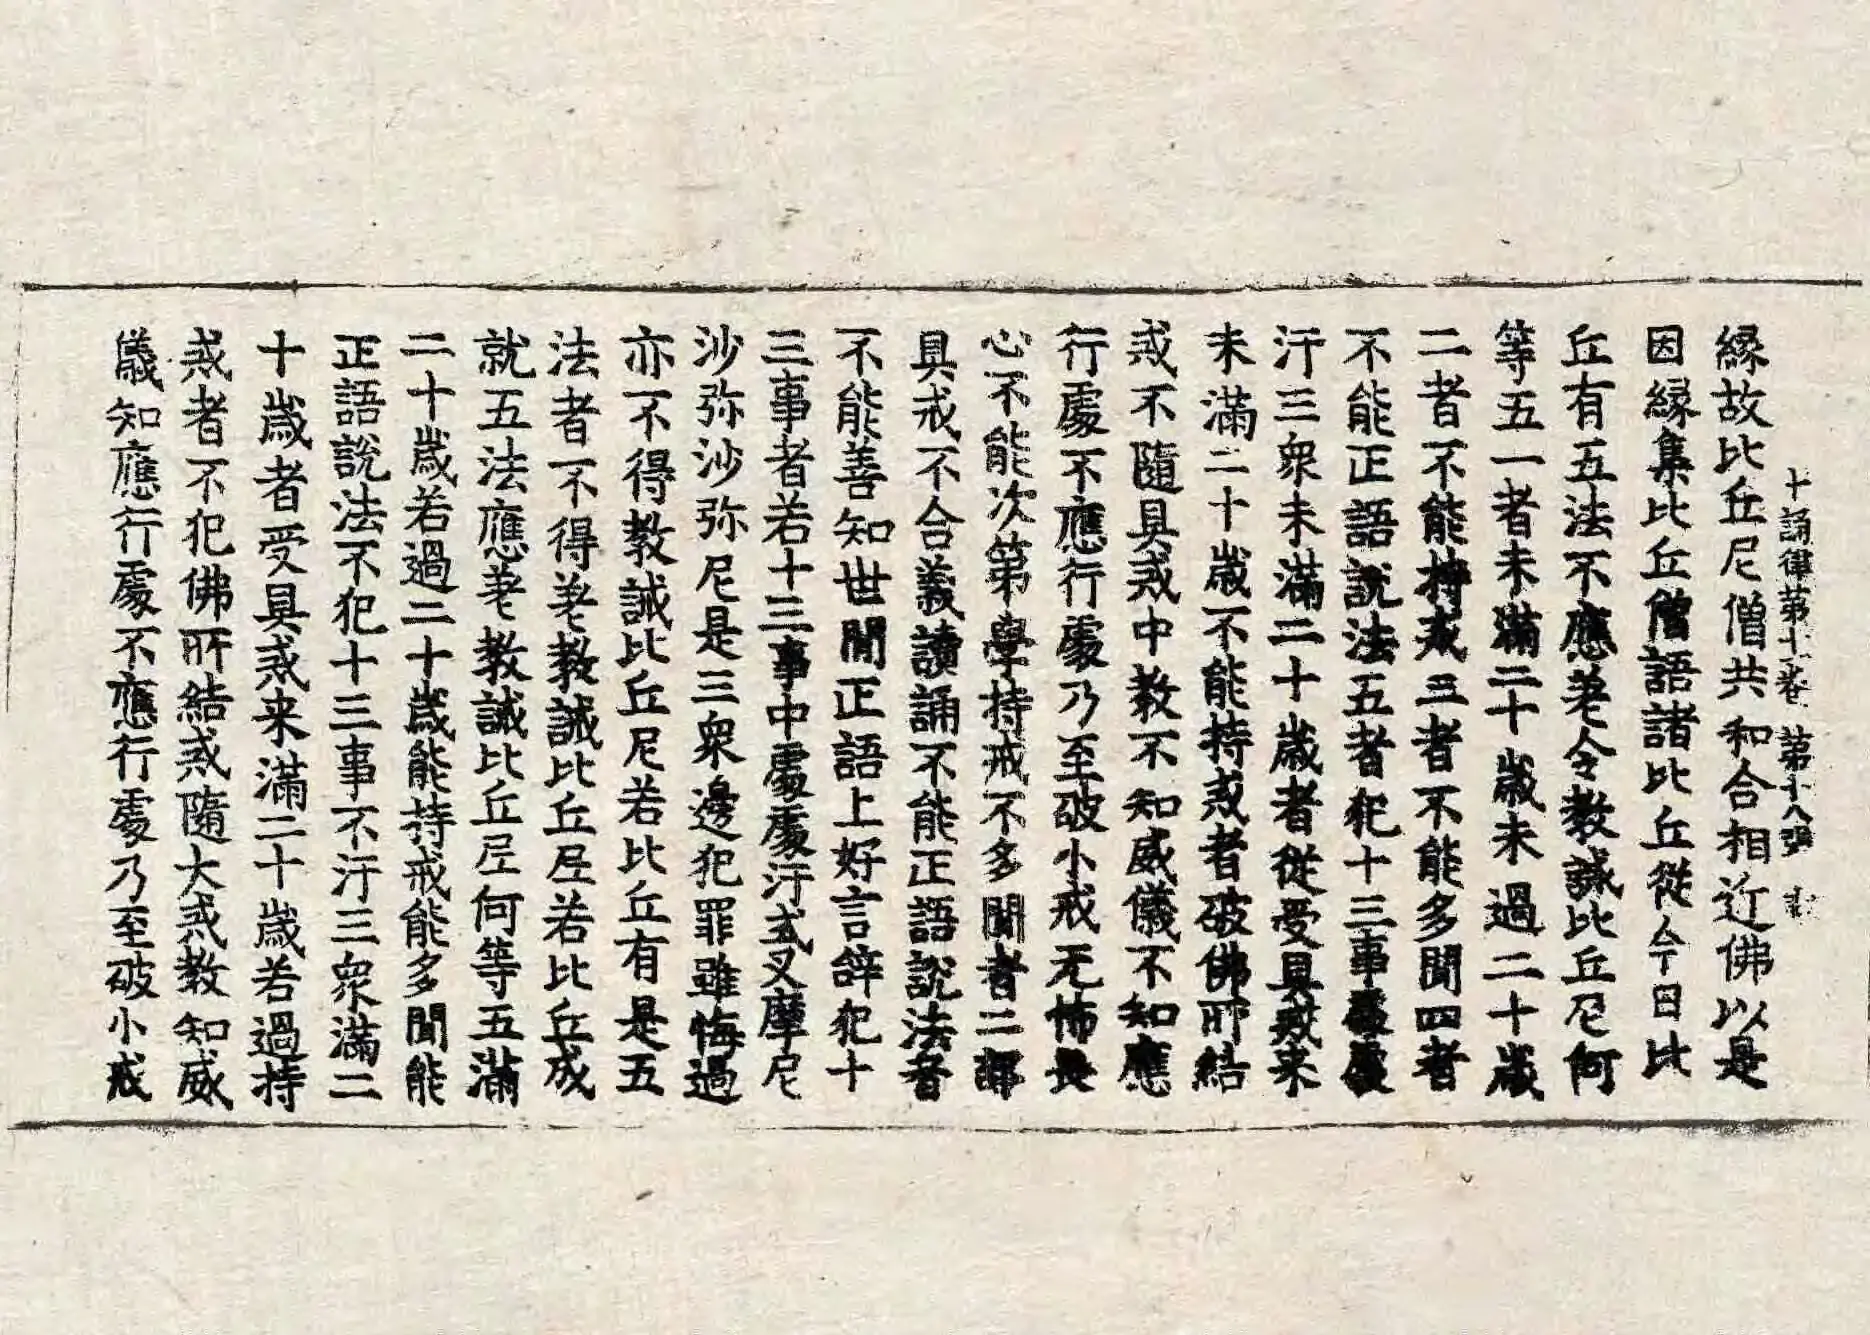 十誦律第十一卷 第十八張
緣故比丘尼僧共和合相近佛以是
因緣集比丘僧語諸比丘從今日比
丘有五法不應差令教誡比丘尼何
等五一者未滿二十歲未過二十歲
二者不能持戒三者不能多聞四者
不能正語說法五者犯十三事處處
汙三衆未滿二十歲者從受具戒來
未滿二十歲不能持戒者破佛所結
戒不隨具戒中教不知威儀不知應
行處不應行處乃至破小戒无怖畏
心不能次第學持戒不多聞者二部
具戒不合義讀誦不能正語說法者
不能善知世間正語上好言辞犯十
三事者若十三事中處處汙式叉摩尼
沙弥沙弥尼是三衆邊犯罪雖悔過
亦不得教誡比丘尼若比丘有是五
法者不得差教誡比丘尼若比丘成
就五法應差教誡比丘尼何等五滿
二十歲若過二十歲能持戒能多聞能
正語說法不犯十三事不汙三衆滿二
十歲者受具戒来滿二十歲若過持
戒者不犯佛所結戒隨大戒教知威
儀知應行處不應行處乃至破小戒